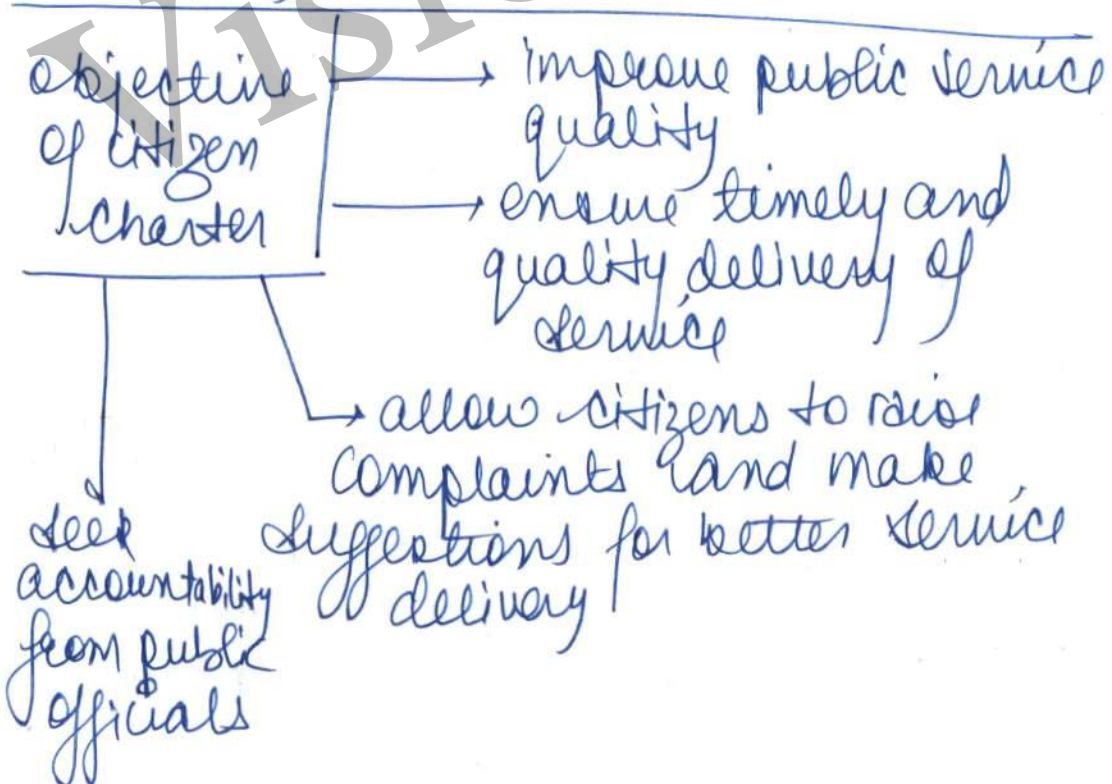 objective
of citizen
charter
improve public service
quality
ensure timely and
quality delivery of
service
allow citizens to raise
complaints and make
suggestions for better service
delivery
seek
accountability
from public
officials